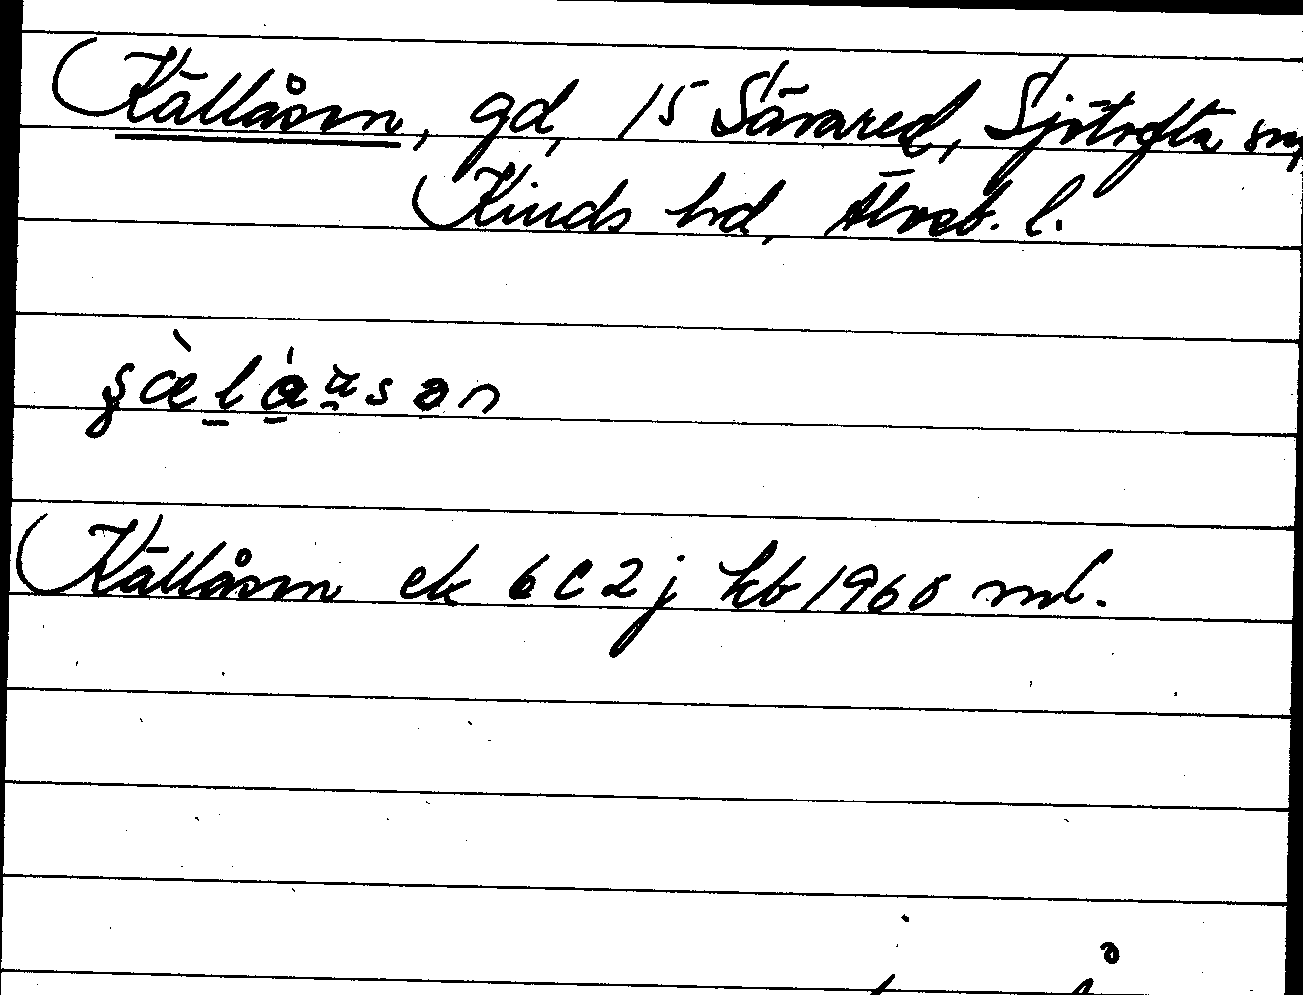 Källåsen, gd, 15 Sävared, Sjötofta sn,
Kinds hd, Älvsb. l.
Källåsen ek 6C2j kb 1968 ml.